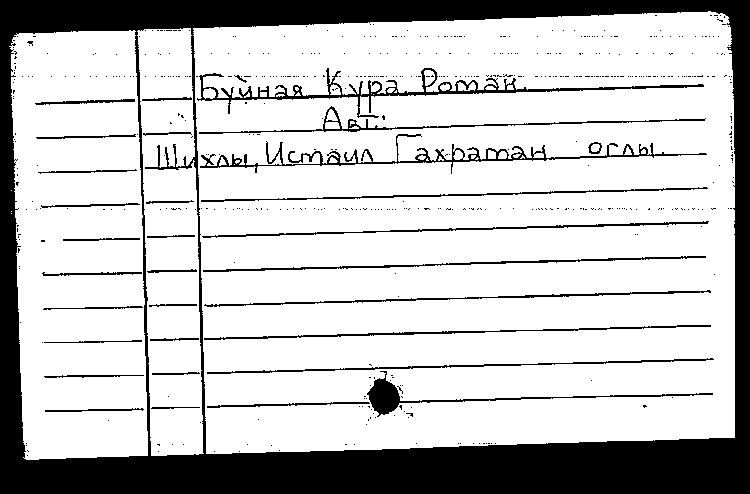 Буйная Кура. Роман.
Авт.:
Шихлы, Исмаил Гахраман оглы.